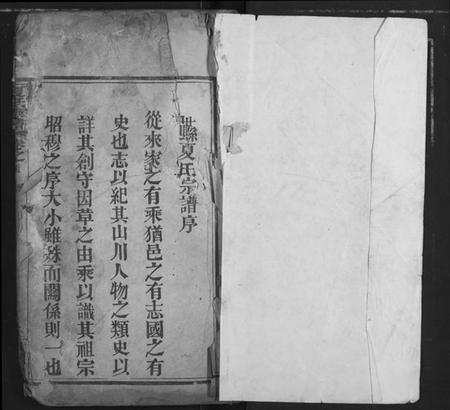 縣夏氏宗譜序
從來家之有乘猶邑之有志國之有
史也志以紀其山川人物之類史以
詳其創守因革之由乘以識其祖宗
昭穆之序大小雖殊而關係則一也